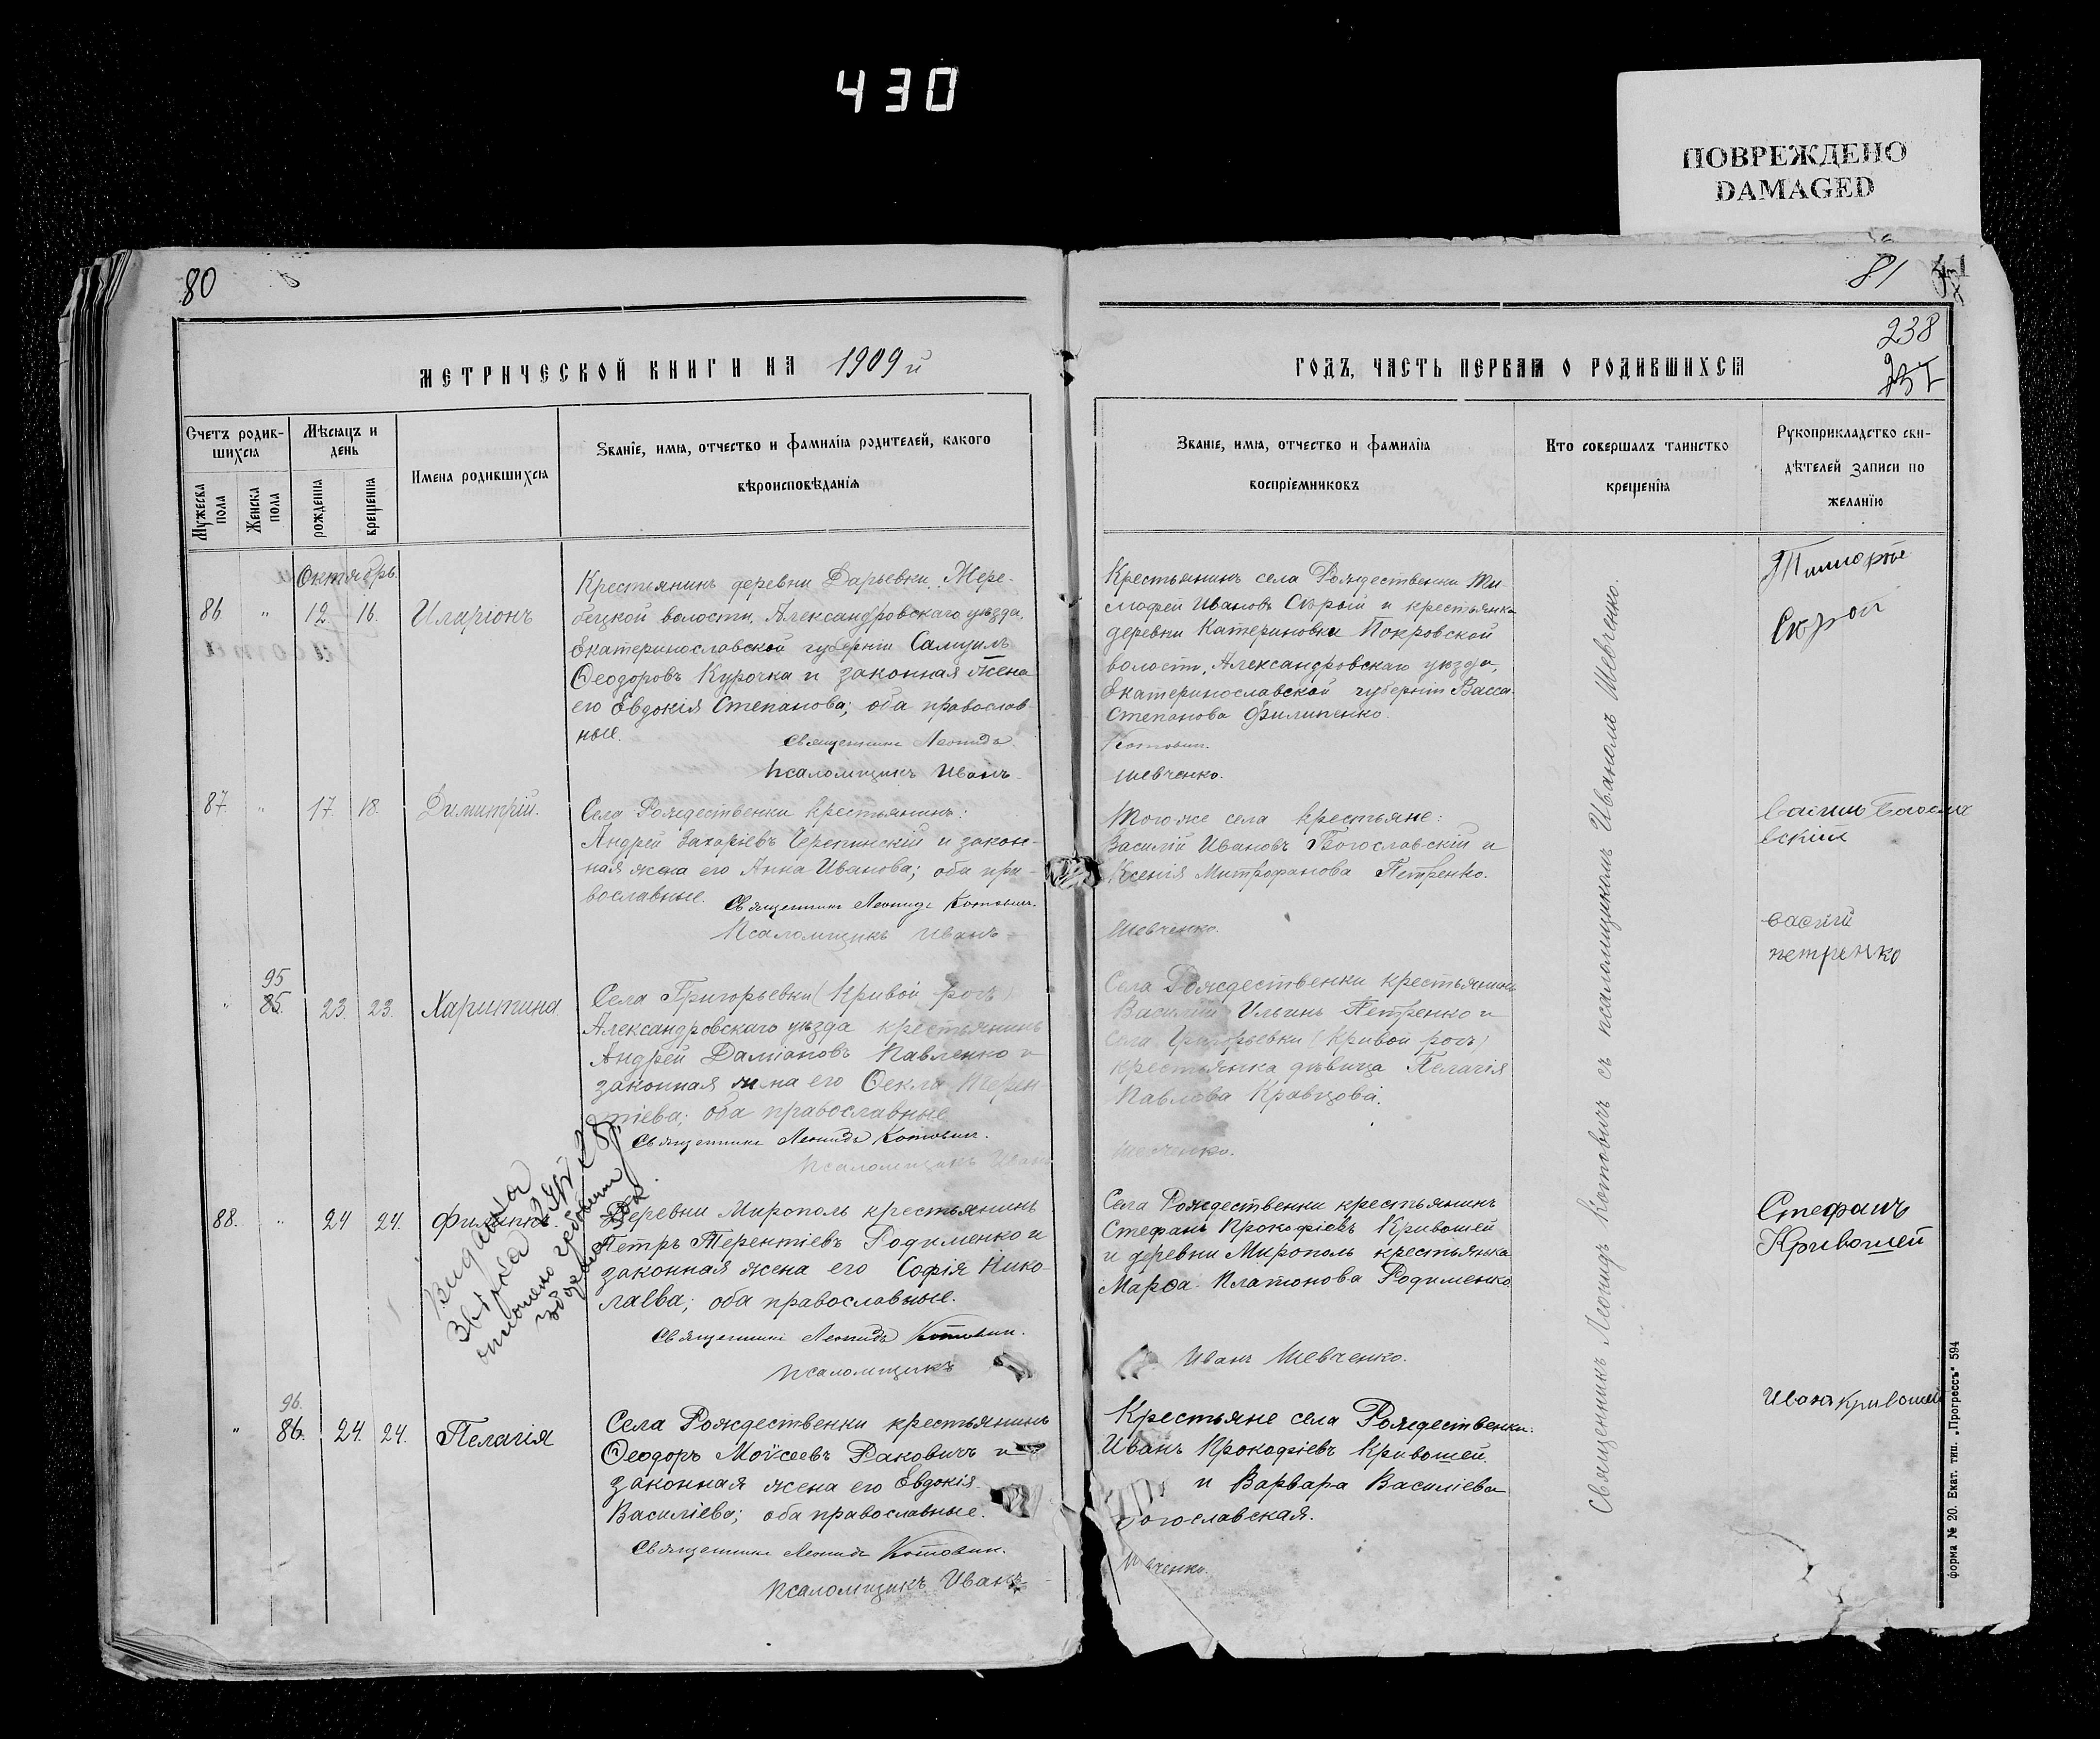 430
ПОВРЕЖДЕНО
DAMAGED
80
МЕТРИЧЕСКОЙ КНИГИ НА 1909 й
Счетъ родив-
шихся
Мѣсяцъ и
день
Мужеска
пола
Женска
пола
рожденія
крещенія
Имена родившихся
Званіе, имя, отчество и фамилія родителей, какого
вѣроисповѣданія
Октябрь.
86. " 12. 16. Иларіонъ
Крестьянинъ деревни Дарьевки, Жере-
бецкой волости, Александровскаго уѣзда,
Екатеринославской губерніи Самуилъ
Ѳеодоровъ Курочка и законная жена
его Евдокія Степанова; оба православ
ные.
Священникъ Леонидъ
Псаломщикъ Иванъ
87 " 17. 18. Димитрій.
Села Рождественки крестьянинъ:
Андрей Захаріевъ Черепинскій и закон-
ная жена его Анна Иванова; оба пра-
вославные. Священникъ Леонидъ Котовичъ.
Псаломщикъ Иванъ
95
" 85. 23. 23. Харитина
Села Григорьевки (Кривой рогъ)
Александровскаго уѣзда крестьянинъ
Андрей Даміановъ Павленко и
законная жена его Ѳекла Терен
тіева; оба православные
Священникъ Леонидъ Котовичъ.
Псаломщикъ Иванъ
Видана
88. " 24 24. Филиппъ.
Деревни Мирополь крестьянинъ
Петръ Терентіевъ Родименко и
законная жена его Софія Нико-
лаева; оба православные.
Священникъ Леонидъ Котовичъ.
Псаломщикъ
96.
" 86. 24. 24. Пелагія
Села Рождественки крестьянинъ
Ѳеодоръ Моѵсеевъ Раковичъ и
законная жена его Евдокія
Василіева; оба православные.
Священникъ Леонидъ Котовичъ.
Псаломщикъ Иванъ
81
238
ГОДЪ, ЧАСТЬ ПЕРВАЯ О РОДИВШИХСЯ
Званіе, имя, отчество и фамилія
воспріемниковъ
Кто совершалъ таинство
крещенія
Рукоприкладство сви-
дѣтелей записи по
желанію
Крестьянинъ села Рождественки Ти-
мофей Ивановъ Сѣрый и крестьянка
деревни Катериновки Покровской
волости, Александровскаго уѣзда,
Екатеринославской губерніи Васса
Степанова Филипенко.
Котовичъ.
Шевченко.
Тогоже села крестьяне:
Василій Ивановъ Богославскій и
Ксенія Митрофанова Петренко.
Шевченко.
Села Рождественки крестьянинъ
Василій Ильинъ Петренко и
села Григорьевки (Кривой рогъ)
крестьянка дѣвица Пелагія
Павлова Кравцова.
Шевченко.
Села Рождественки крестьянинъ
Стефанъ Прокофіевъ Кривошей
и деревни Мирополь крестьянка
Марѳа Платонова Родименко
Иванъ Шевченко.
Крестьяне села Рождественки:
Иванъ Прокофіевъ Кривошей
и Варвара Василіева
огославская.
вченко.
Священникъ Леонидъ Котовичъ съ псаломщикомъ Иваномъ Шевченко.
васили
петренко
Стефанъ
Кривошей
Иванъ Кривошей
форма № 20. Екат. тип. „Прогрессъ" 594